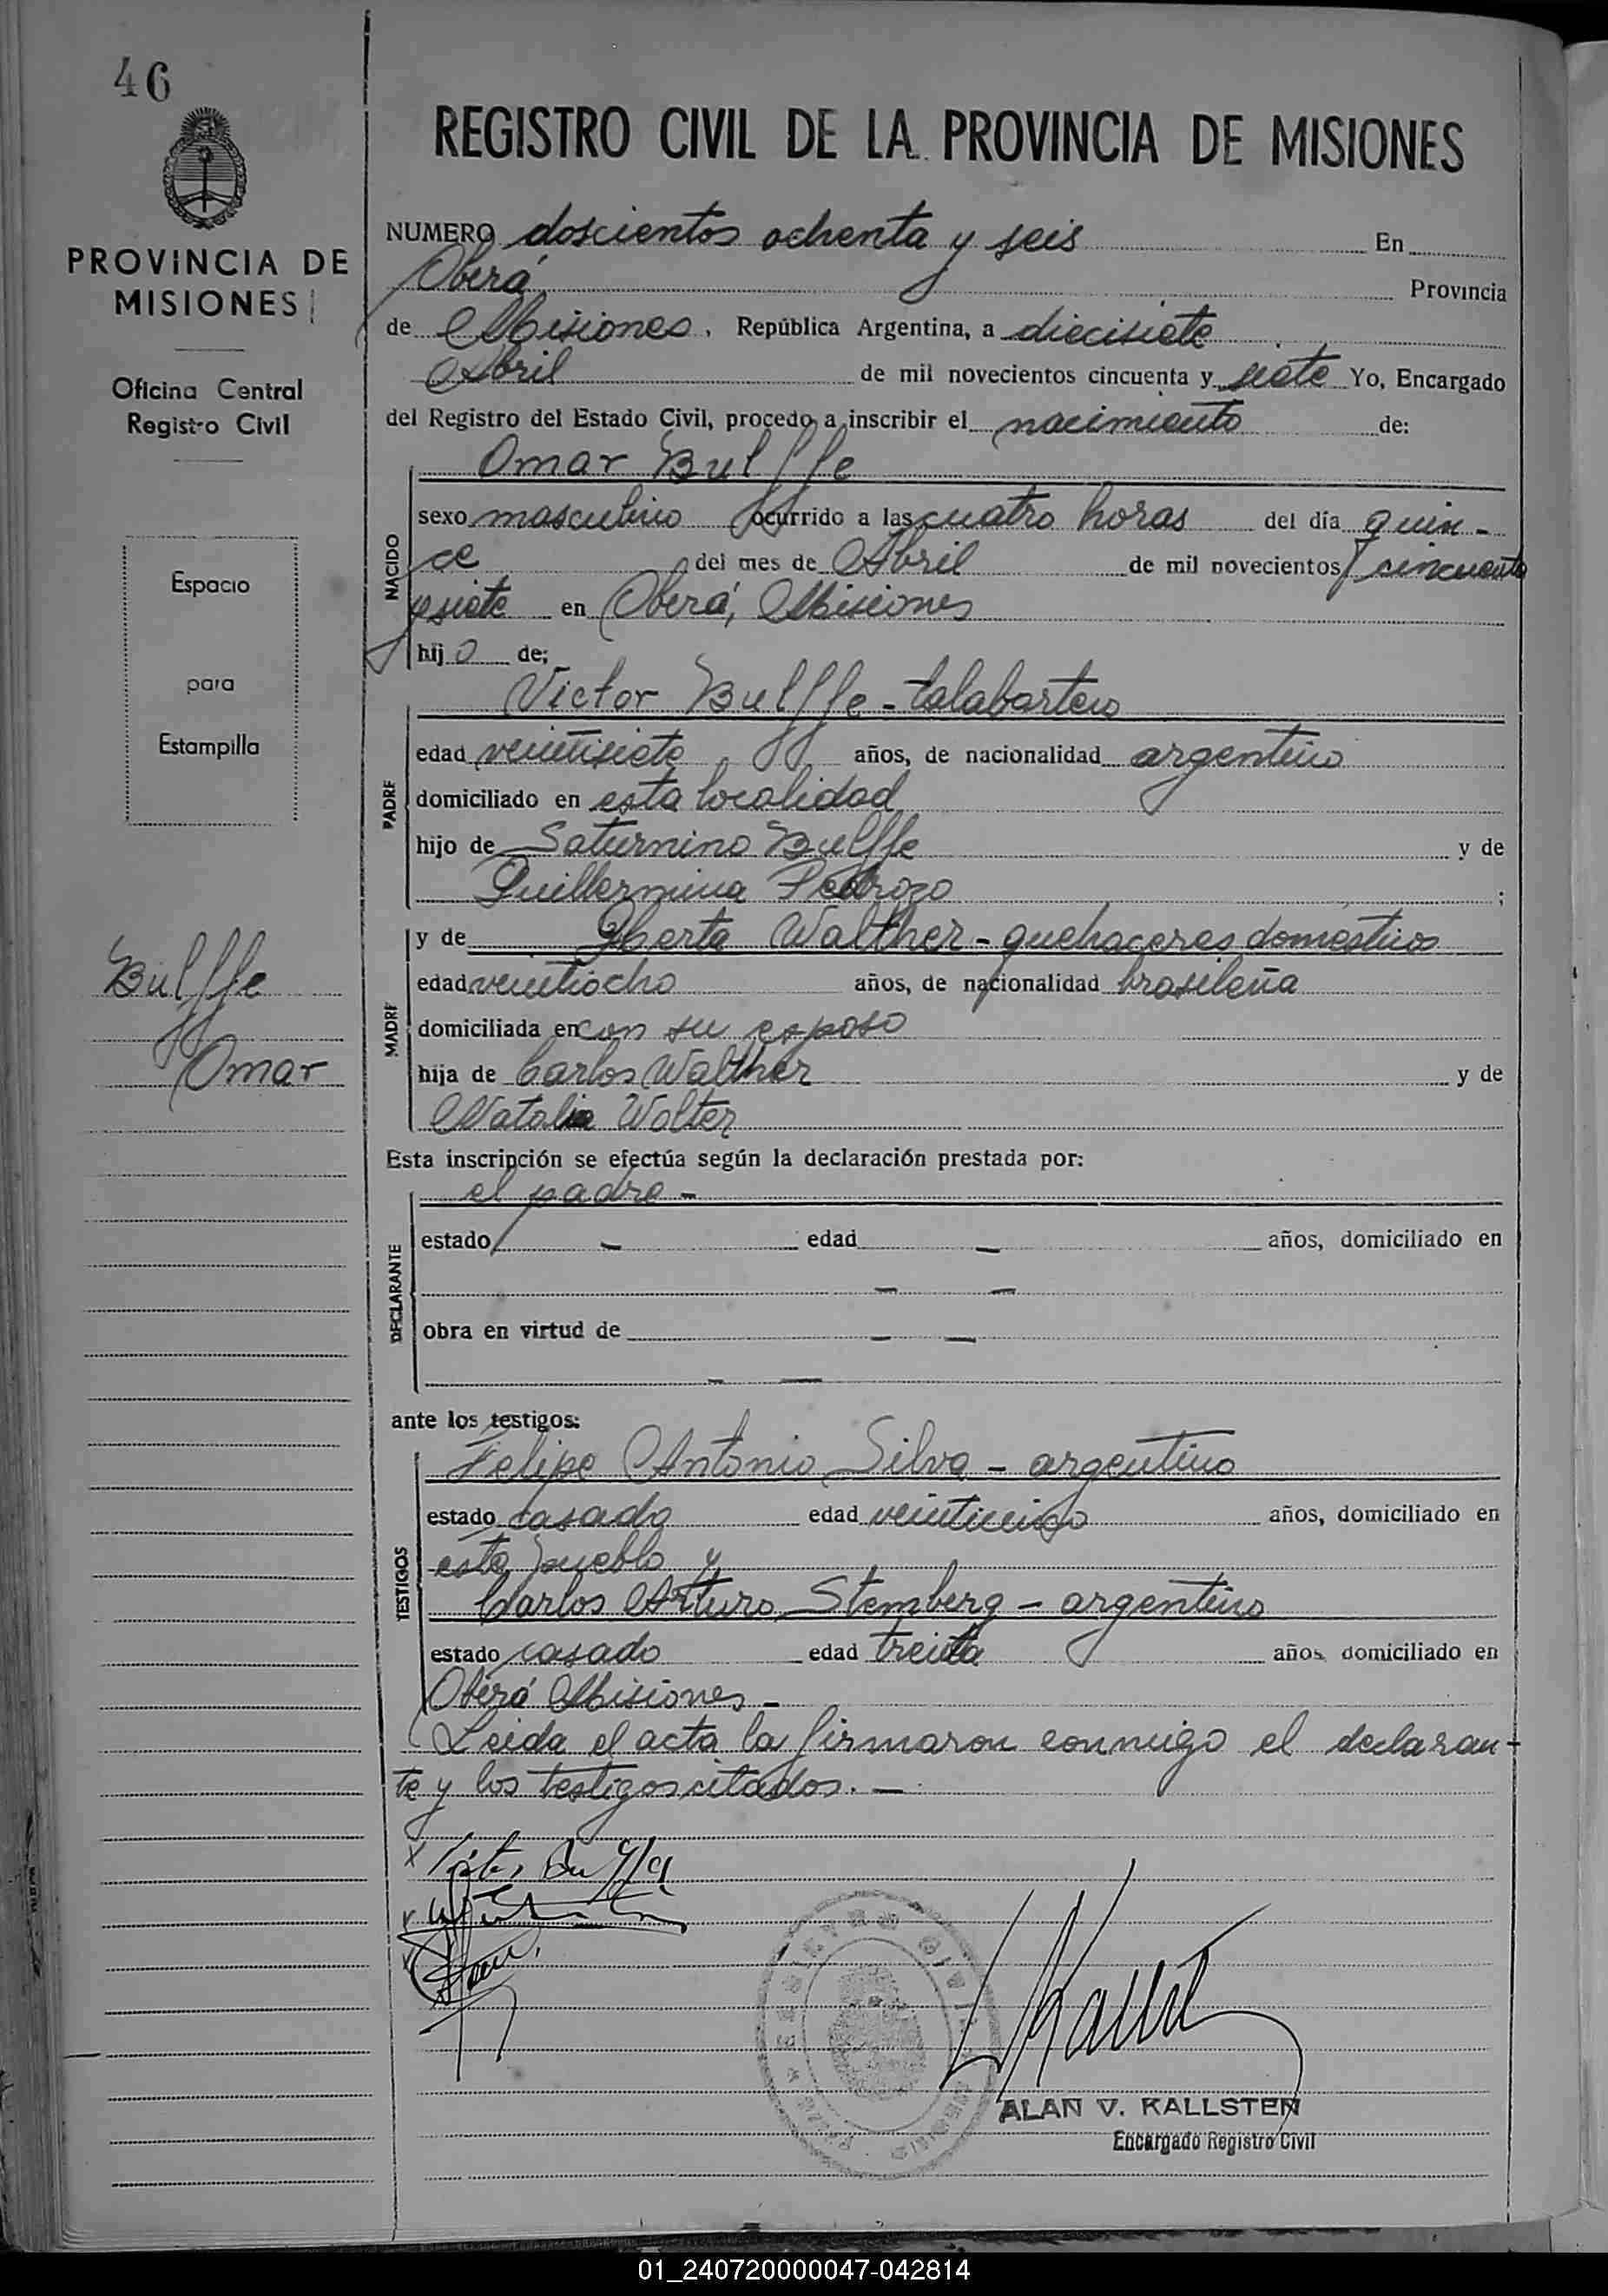 46
PROVINCIA DE
MISIONES
Oficina Central
Registro Civil
Espacio
para
Estampilla
Bulffe
Omar
REGISTRO CIVIL DE LA PROVINCIA DE MISIONES
NUMERO doscientos ochenta y seis En
Oberá Provincia
de Misiones, República Argentina, a diecisiete
Abril de mil novecientos cincuenta y siete Yo, Encargado
del Registro del Estado Civil, procedo a inscribir el nacimiento de:
Omar Bulffe
NACIDO
sexo masculino ocurrido a las cuatro horas del día quin-
ce del mes de Abril de mil novecientos cincuenta
y siete en Oberá, Misiones
hijo de;
Victor Bulffe - talabartero
PADRE
edad veintisiete años, de nacionalidad argentino
domiciliado en esta localidad
hijo de Saturnino Bulffe y de
Guillermina Pedrozo ;
y de Berta Walther - quehaceres domesticos
MADRE
edad veintiocho años, de nacionalidad brasileña
domiciliada en con su esposo
hija de Carlos Walther y de
Natalia Wolter
Esta inscripción se efectúa según la declaración prestada por:
el padre -
DECLARANTE
estado - edad - años, domiciliado en
- -
obra en virtud de - -
- -
ante los testigos:
Felipe Antonio Silva - argentino
TESTIGOS
estado casado edad veinticinco años, domiciliado en
este pueblo y
Carlos Arturo Stemberg - argentino
estado casado edad treinta años domiciliado en
Oberá Misiones -
Leida el acta la firmaron conmigo el declaran-
te y los testigos citados. -
ALAN V. KALLSTEN
Encargado Registro Civil
01_240720000047-042814